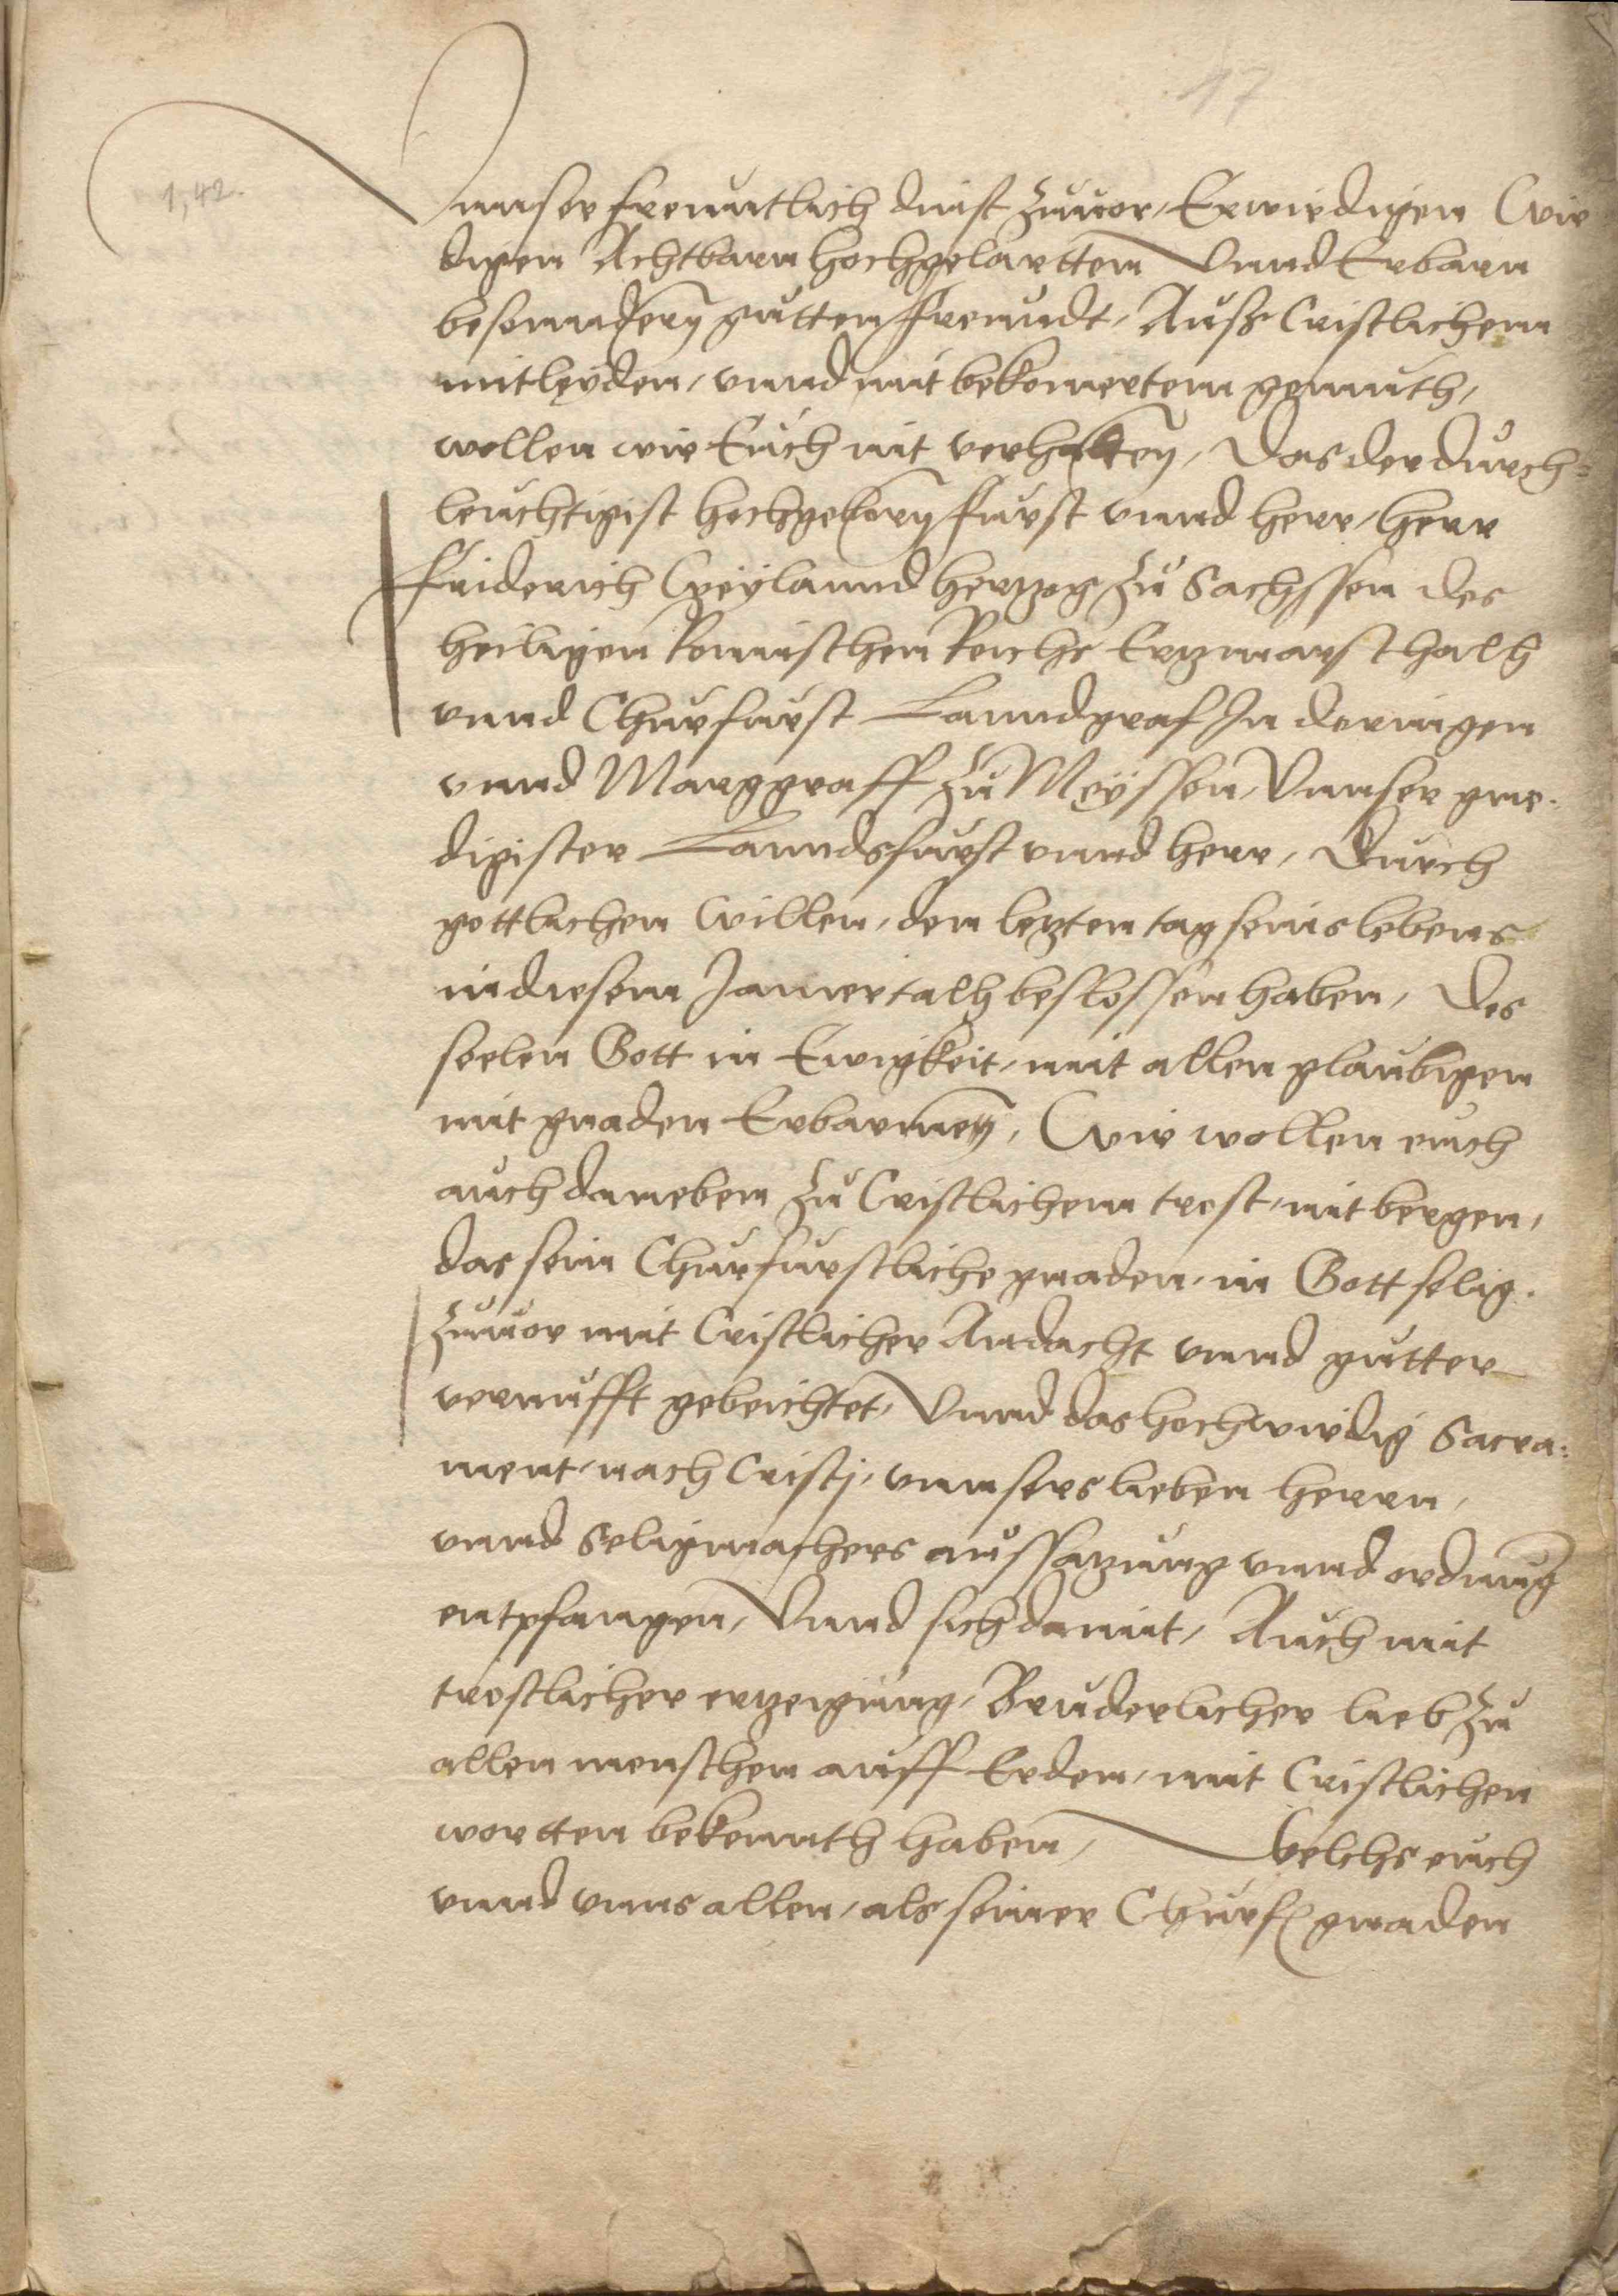 17
1,42.
Vnnser freuntlich dinst zuuor, Erwirdigen Wir
digen Achtbarn hochgelartten Vnnd Erbarn
besonndern gutten freundt, Auß Cristlichem
mitleyden, vnnd mit bekomertem gemuth,
wollen wir Euch nit verhalten, Das der durch=
leuchtigist hochgeborn furst vnnd herr, herr
Friderich Weylannd hertzog zu Sachssen des
heiligen Romischen Reichs Ertzmarschalh
vnnd Churfurst Lanndgraf In doringen
vnnd Marggraff zu Meyssen, Vnnser gne-
digister Lanndsfurst vnnd herr, Durch
gottlichen Willen, den letzten tag seins lebens
in diesem Jamertalh beslossen haben, Des
seelen Gott in Ewigkeit, mit allen glaubigen
mit gnaden Erbarmen, Wir wollen euch
auch daneben zu Cristlichem trost, nit bergen,
das sein Churfurstliche gnaden, in Gott selig.
zuuor mit Cristlicher Andacht vnnd gutter
vernufft gebeichtet, Vnnd das hochwirdig Sacra-
ment, nach Cristj, vnnsers lieben herrn,
vnnd Seligmachers aussatzung vnnd ordnung
entpfangen, Vnnd sich damit, Auch mit
trostlicher ertzeigung, Bruderlicher lieb zu
allen menschen auff Erden, mit Cristlichen
wortten bekennth haben, Welchs euch
vnnd vnns allen, als seiner Churf gnaden